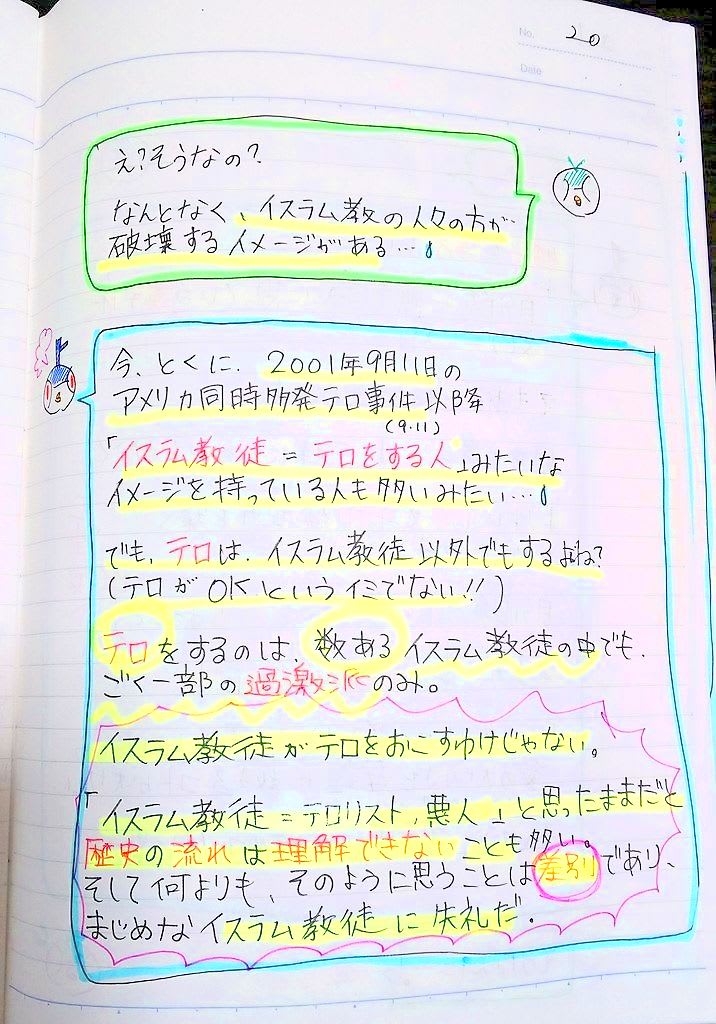 No. 20
Date
え?そうなの?
なんとなく、イスラム教の人々の方が
破壊するイメージがある…
今、とくに、2001年9月11日の
アメリカ同時多発テロ事件以降
(9.11)
「イスラム教徒=テロをする人」みたいな
イメージを持っている人も多いみたい…
でも、テロは、イスラム教徒以外でもするよね?
(テロがOKというイミでない!!)
テロをするのは、数あるイスラム教徒の中でも、
ごく一部の過激派のみ。
イスラム教徒がテロをおこすわけじゃない。
「イスラム教徒=テロリスト,悪人」と思ったままだと
歴史の流れは理解できないことも多い。
そして何よりも、そのように思うことは差別であり、
まじめなイスラム教徒に失礼だ.